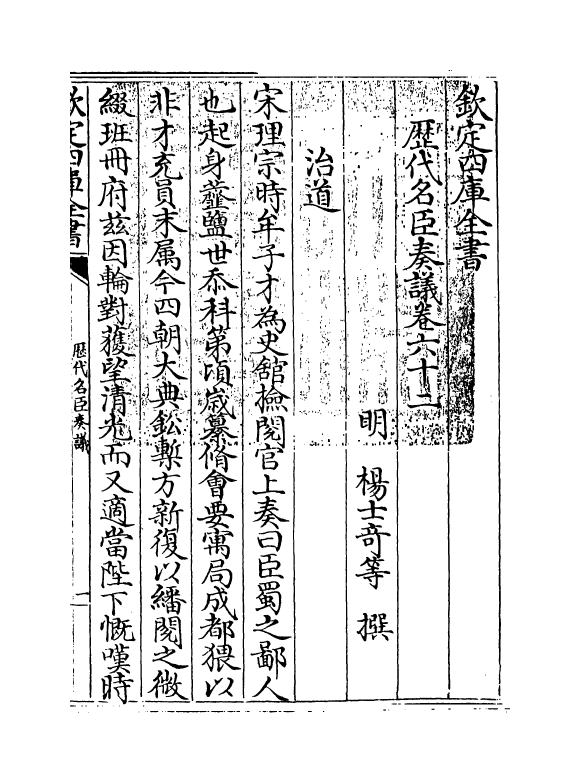 欽定四庫全書
歷代名臣奏議卷六十二
明　楊士竒等　撰
治道
宋理宗時牟子才為史舘檢閱官上奏曰臣蜀之鄙人
也起身虀鹽世忝科第頃嵗纂脩會要寓局成都猥以
非才充員末属今四朝大典鈆槧方新復以繙閱之微
綴班冊府兹因輪對獲望清光而又適當陛下慨嘆時
欽定四庫全書
歷代名臣奏議
一